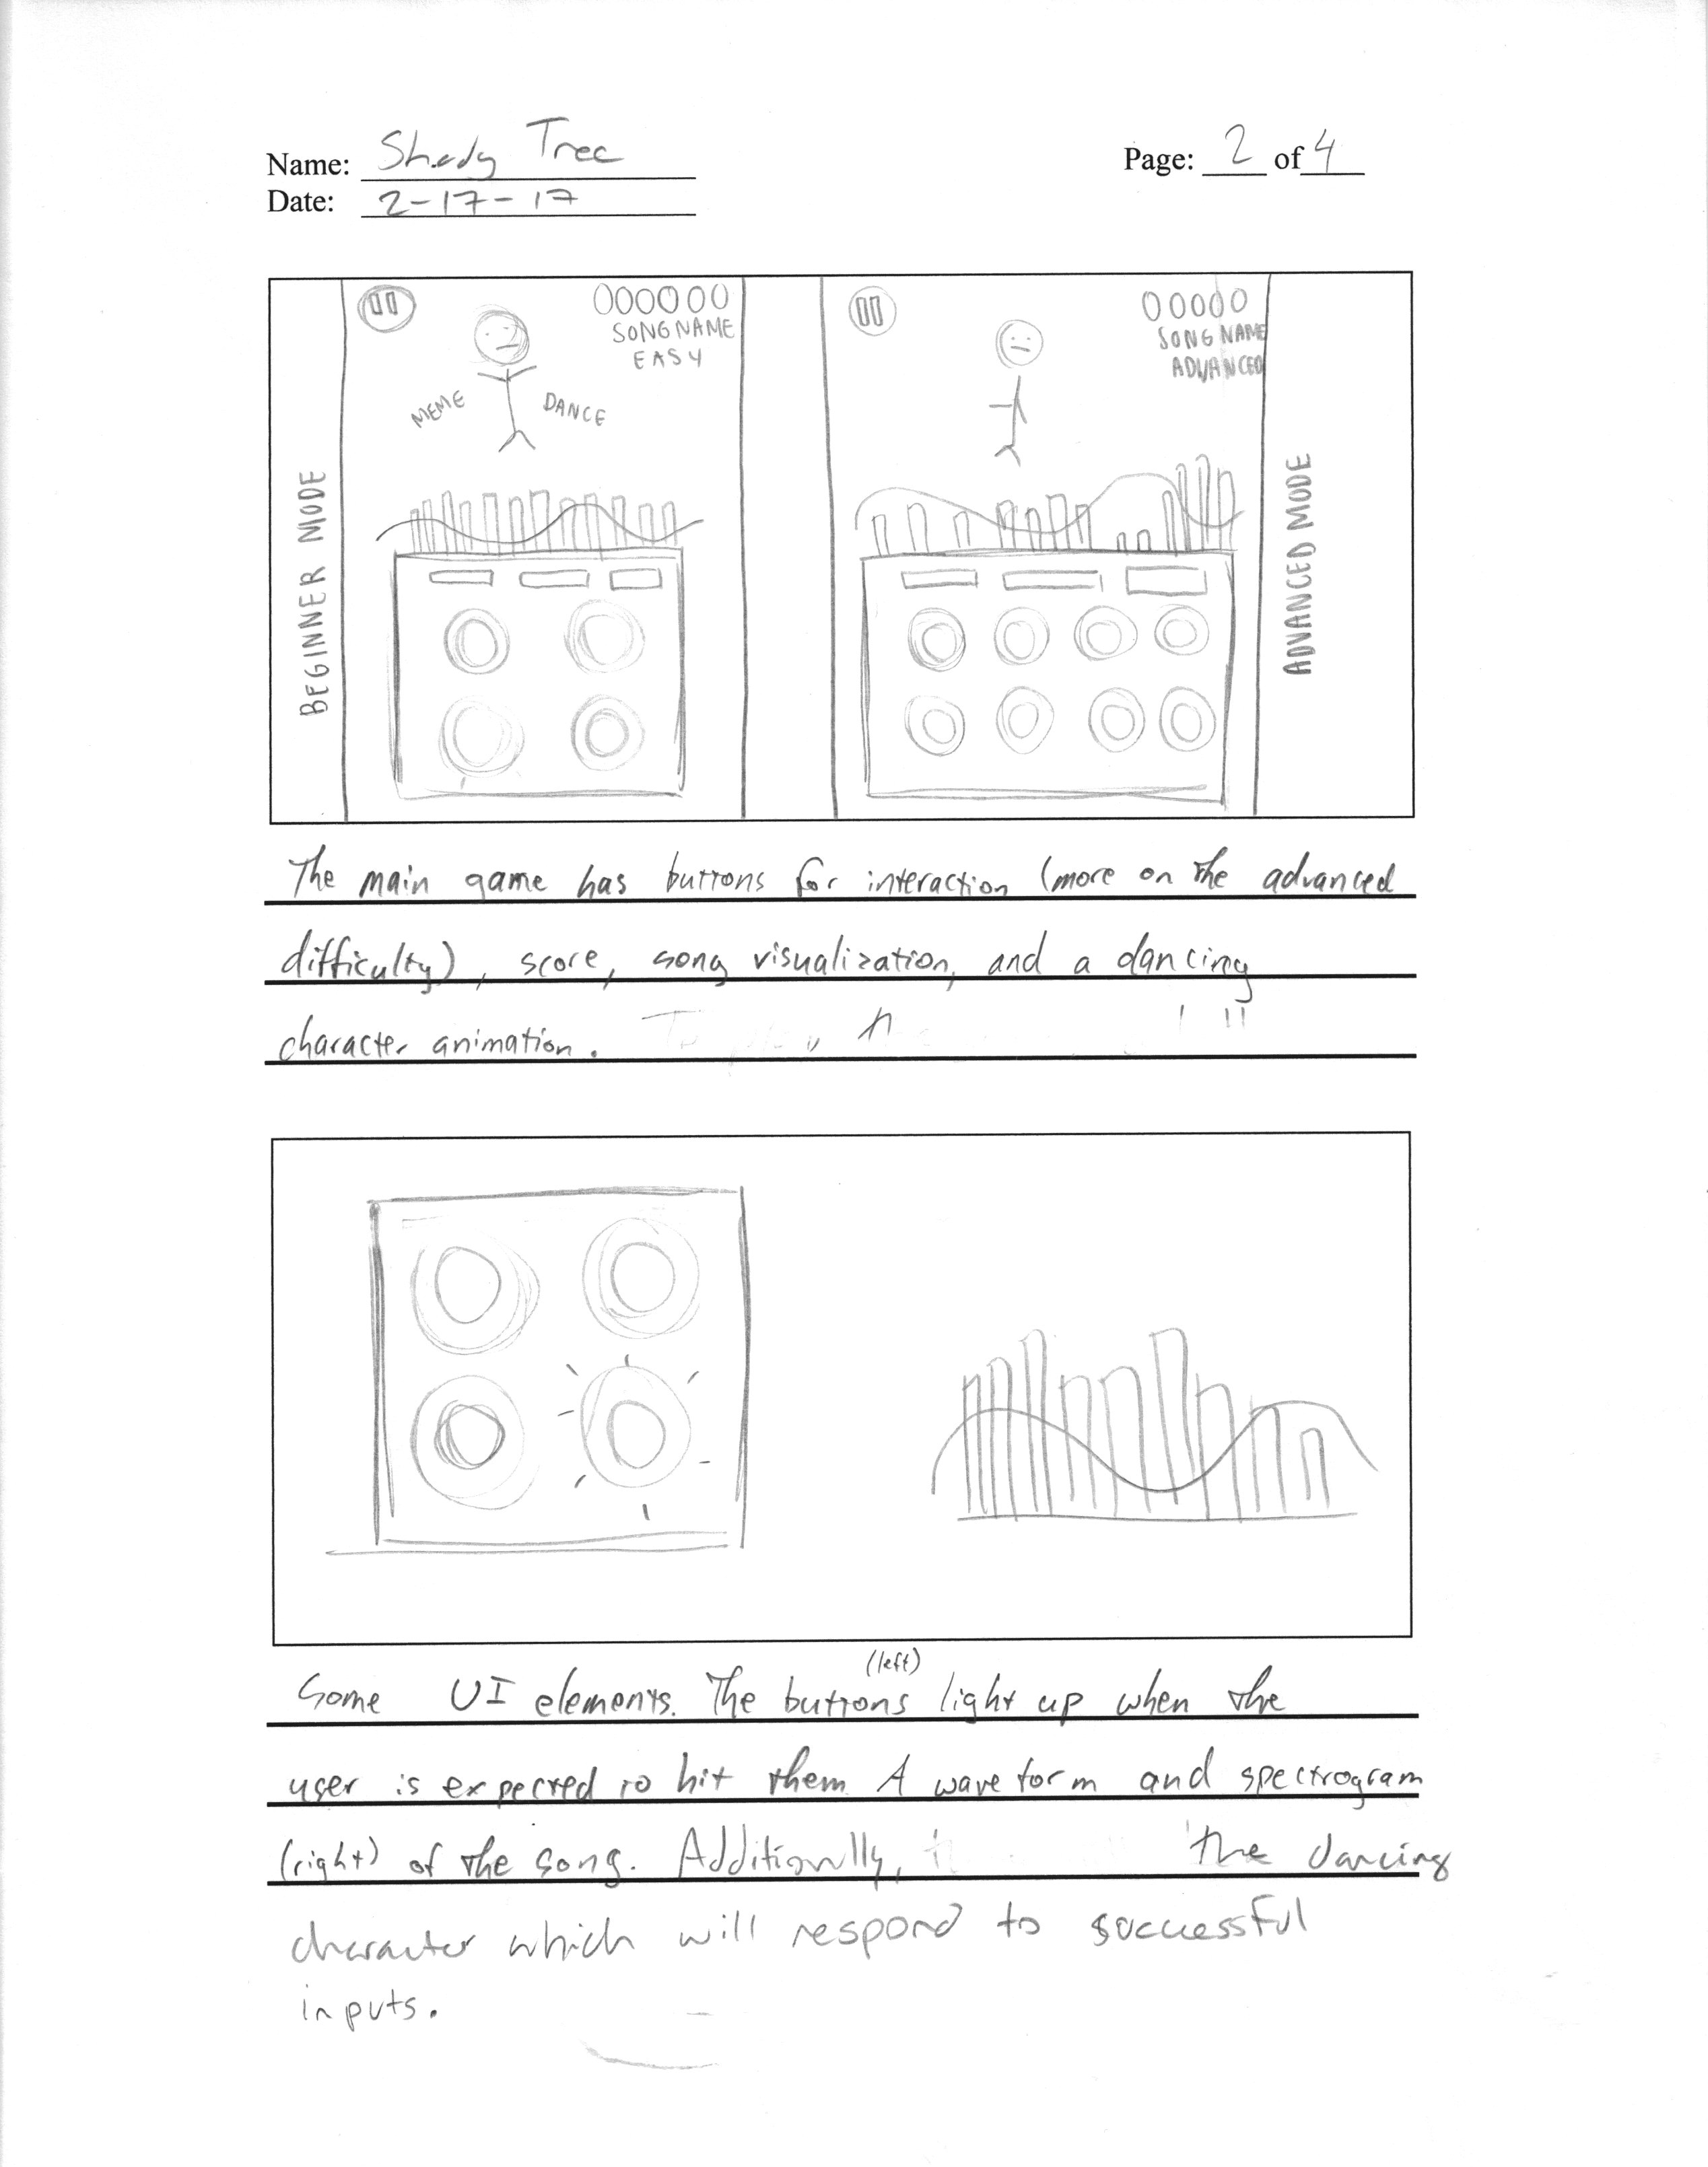 Name: Shady Tree
Page: 2 of 4
Date: 2-17-17
000000
SONGNAME
EASY
MEME
DANCE
BEGINNER MODE
00000
SONG NAME
ADVANCED
ADVANCED MODE
The main game has buttons for interaction (more on the advanced
difficulty), score, song visualization, and a dancing
character animation.
(left)
Some UI elements. The buttons light up when the
user is expected to hit them A waveform and spectrogram
(right) of the song. Additionally, the dancing
character which will respond to successful
inputs.